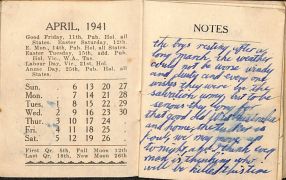 APRIL, 1941
Good Friday, 11th, Pub. Hol. all
States. Easter Saturday, 12th.
E. Mon., 14th, Pub. Hol. all States.
Easter Tuesday, 15th, add. Pub.
Hol., Vic., W.A., Tas.
Labour Day, Vic., 21st, Hol.
Anzac Day, 25th, Pub. Hol., all
States.
Sun. 6 13 20 27
Mon. 7 14 21 28
Tues. 1 8 15 22 29
Wed. 2 9 16 23 30
Thur. 3 10 17 24
Fri. 4 11 18 25
Sat. 5 12 19 26
First Qr. 5th, Full Moon 12th
Last Qr. 18th, New Moon 26th
NOTES
the boys resting after a
long march, the weather
could not be worse windy
and dusty and every one
wishes they were by the
but to be
serious they
that good old
and home, that's her
we may
to night, and I think every
man is thinking who
will be